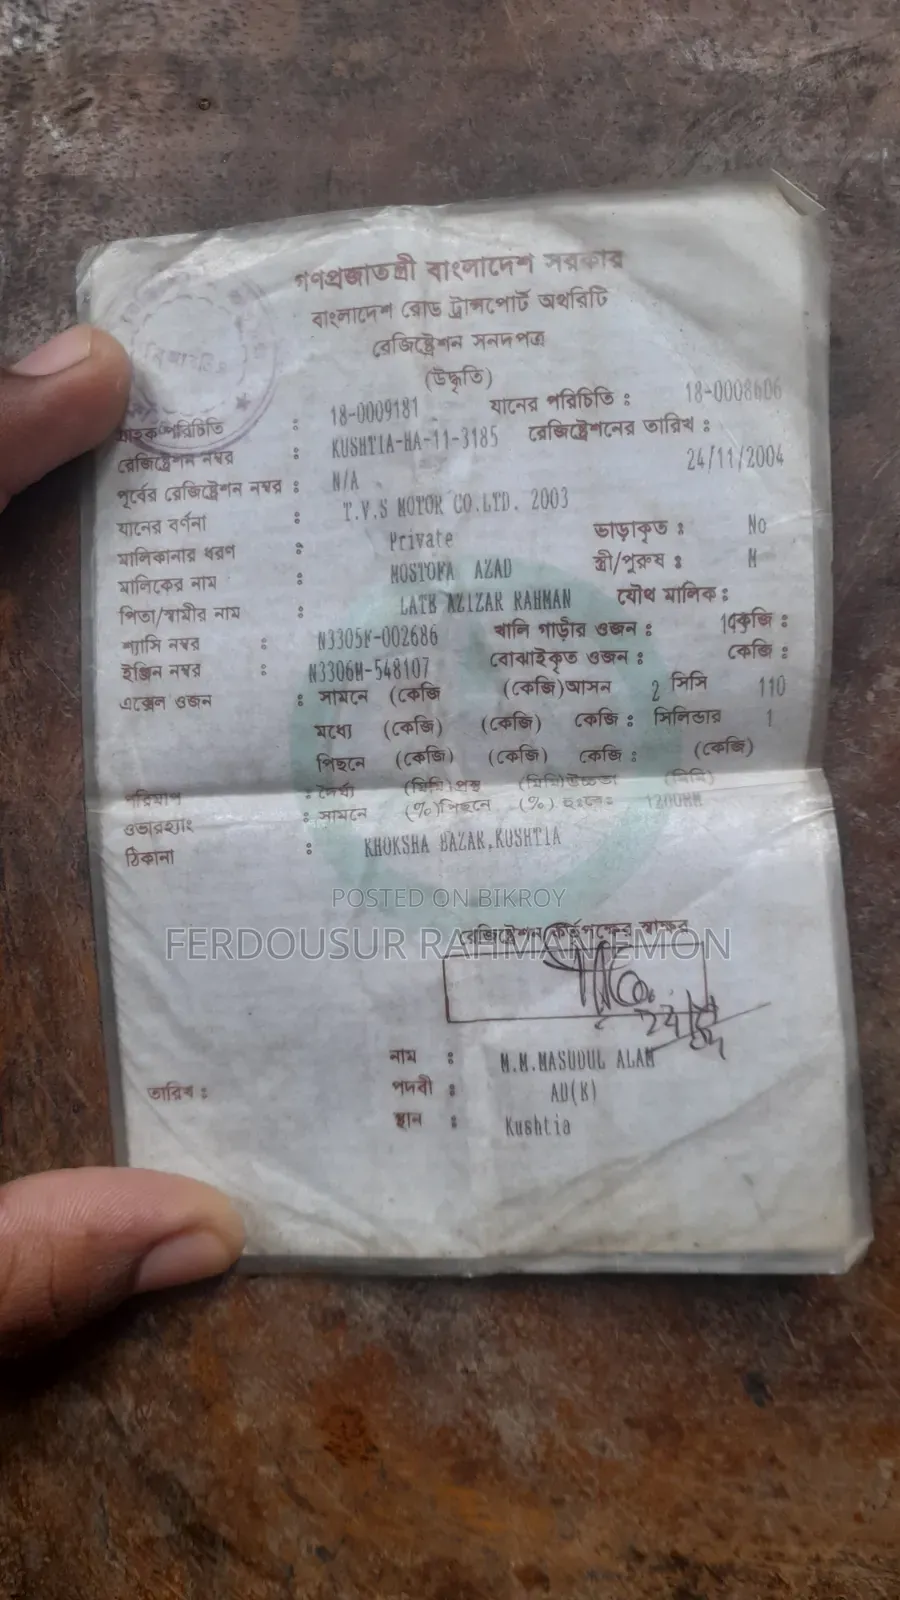 গণপ্রজাতন্ত্রী বাংলাদেশ সরকার
বাংলাদেশ রোড ট্রান্সপোর্ট অথরিটি
রেজিষ্ট্রেশন সনদপত্র
(উদ্ধৃতি)
গ্রাহক পরিচিতি : 18-0009181 যানের পরিচিতি : 18-0008606
রেজিষ্ট্রেশন নম্বর : KUSHTIA-HA-11-3185 রেজিষ্ট্রেশনের তারিখ :
24/11/2004
পূর্বের রেজিষ্ট্রেশন নম্বর : N/A
যানের বর্ণনা : T.V.S MOTOR CO.LTD. 2003
মালিকানার ধরণ : Private ভাড়াকৃত : No
মালিকের নাম : MOSTOFA AZAD স্ত্রী/পুরুষ : M
পিতা/স্বামীর নাম : LATE AZIZAR RAHMAN যৌথ মালিক :
শ্যাসি নম্বর : N3305F-002686 খালি গাড়ীর ওজন : কেজি :
ইঞ্জিন নম্বর : N3306M-548107 বোঝাইকৃত ওজন : কেজি :
এক্সেল ওজন : সামনে (কেজি (কেজি)আসন 2 সিসি 110
মধ্যে (কেজি) (কেজি) কেজি : সিলিন্ডার 1
পিছনে (কেজি) (কেজি) কেজি : (কেজি)
পরিমাপ : দৈর্ঘ্য (মিমি)প্রস্থ (মিমি)উচ্চতা (মিমি)
ওভারহ্যাং : সামনে (%)পিছনে (%) 1200MM
ঠিকানা : KHOKSHA BAZAR,KUSHTIA
POSTED ON BIKROY
রেজিষ্ট্রেশন কর্তৃপক্ষের স্বাক্ষর
FERDOUSUR RAHMAN EMON
নাম : M.M.MASUDUL ALAM
তারিখ : পদবী : AD(K)
স্থান : Kushtia